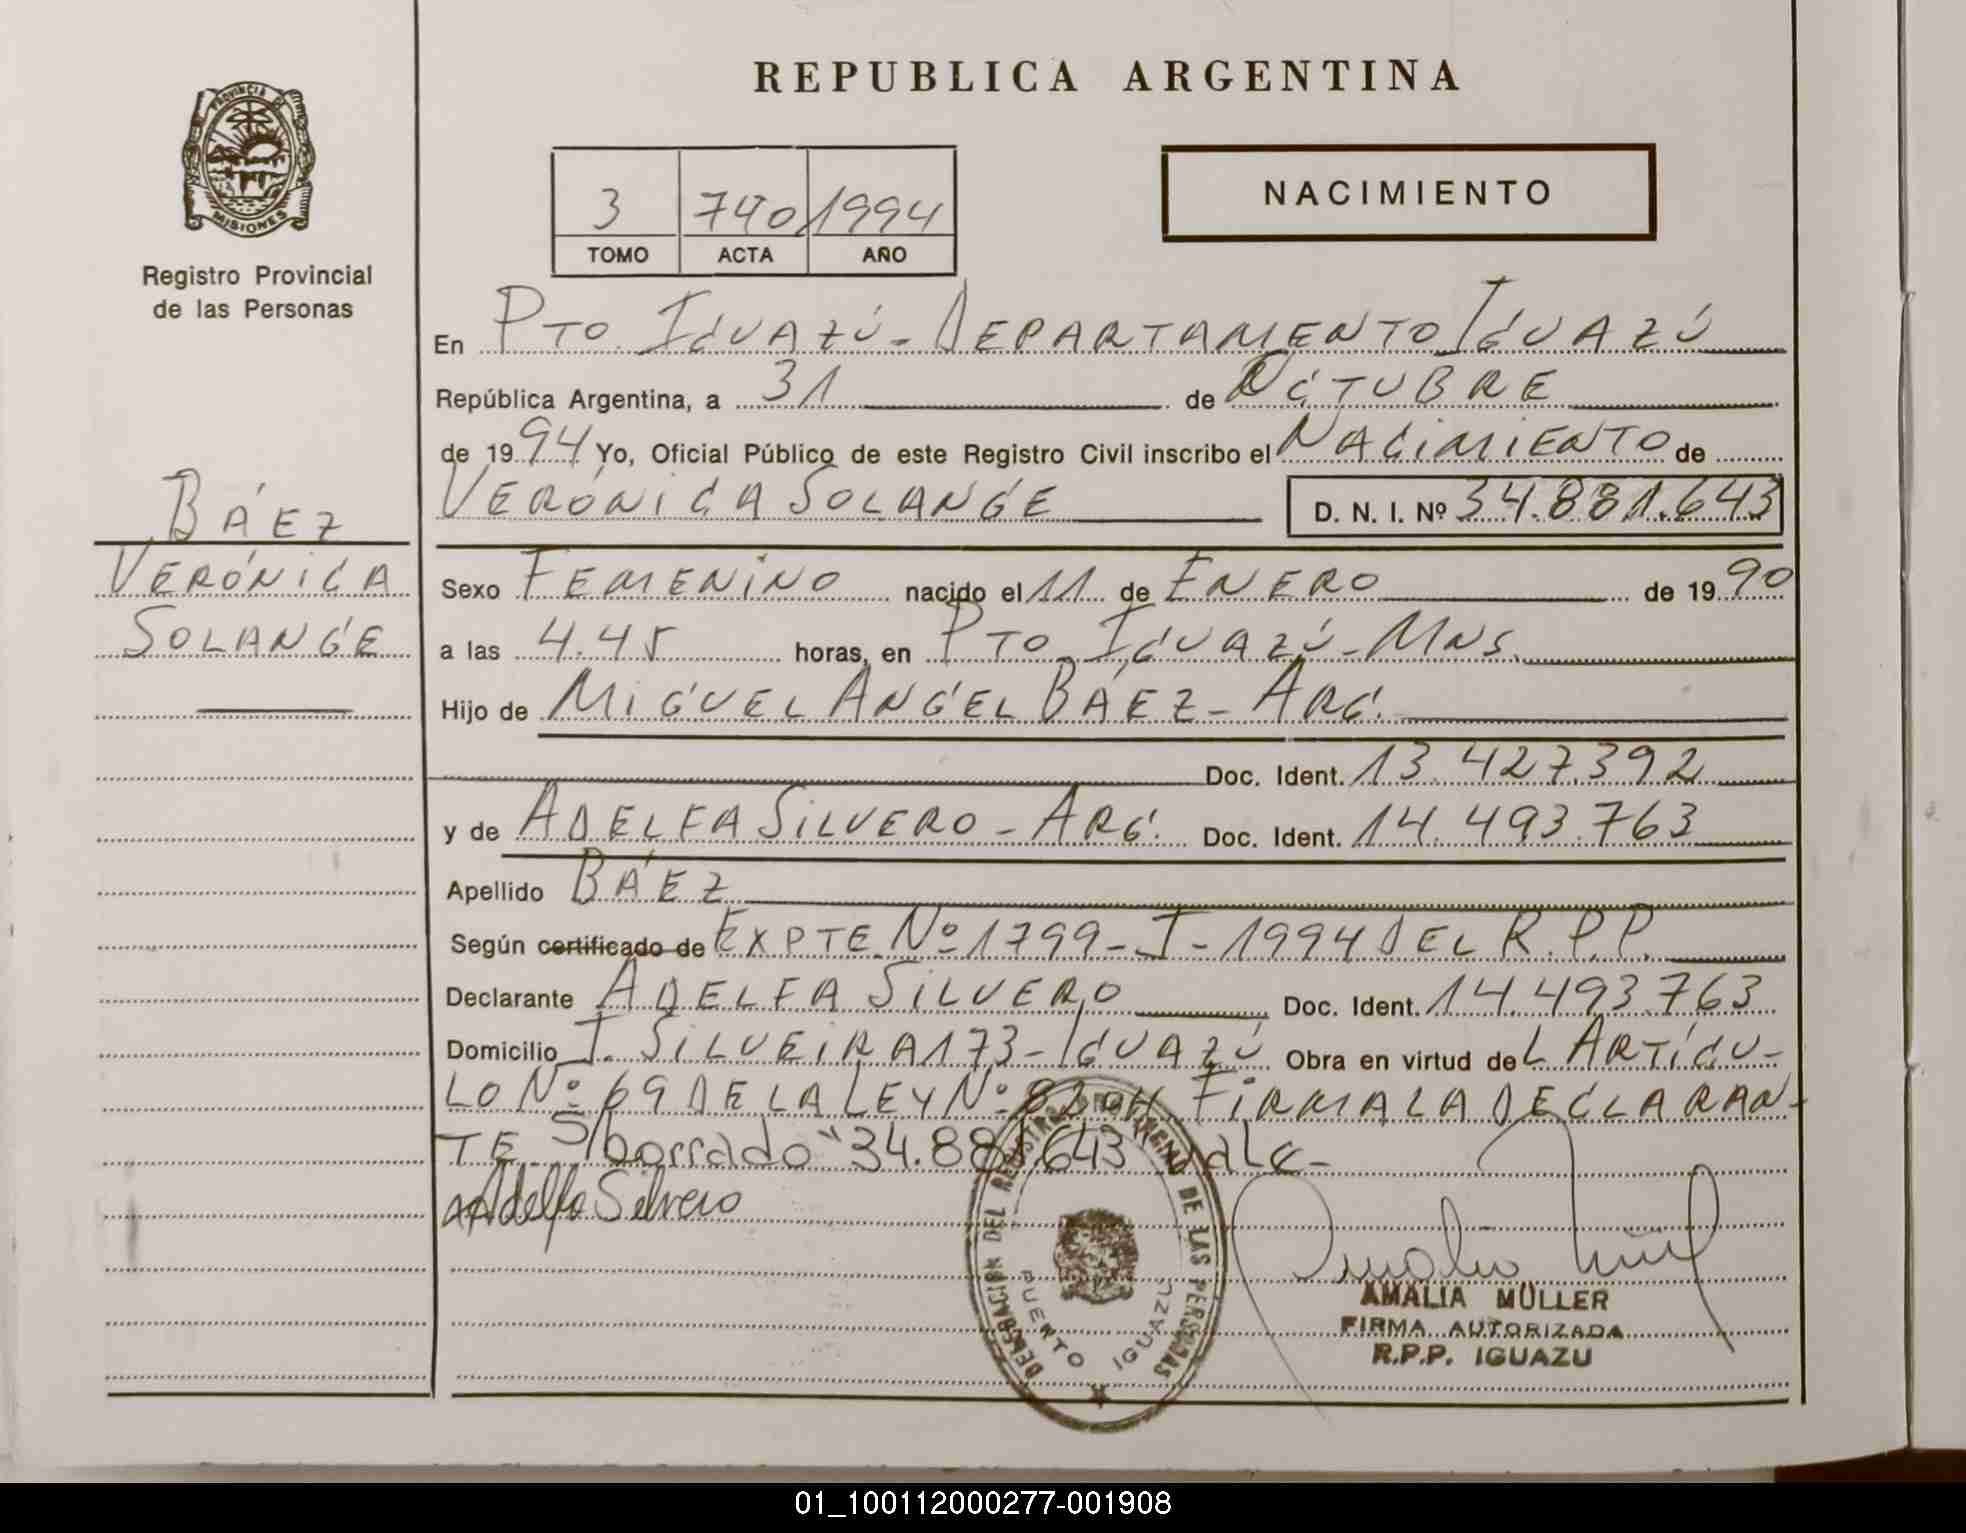 REPUBLICA ARGENTINA
PROVINCIA DE
MISIONES
Registro Provincial
de las Personas
3 740 1994
TOMO ACTA AÑO
NACIMIENTO
En PTO. IGUAZÚ - DEPARTAMENTO IGUAZÚ
República Argentina, a 31 de OCTUBRE
de 1994 Yo, Oficial Público de este Registro Civil inscribo el NACIMIENTO de
VERÓNICA SOLANGE D. N. I. Nº 34.881.643
BÁEZ
VERÓNICA
SOLANGE
Sexo FEMENINO nacido el 11 de ENERO de 1990
a las 4.45 horas, en PTO. IGUAZÚ - MNS.
Hijo de MIGUEL ANGEL BÁEZ - ARG.
Doc. Ident. 13.427.392
y de ADELFA SILVERO - ARG. Doc. Ident. 14.493.763
Apellido BÁEZ
Según certificado de EXPTE Nº 1799 - I - 1994 DEL R.P.P.
Declarante ADELFA SILVERO Doc. Ident. 14.493.763
Domicilio J. SILVEIRA 173 - IGUAZÚ Obra en virtud del ARTÍCU-
LO Nº 69 DE LA LEY Nº 8204. FIRMA LA DECLARAN-
TE S/borrado "34.881.643 vale-
Adelfa Silvero
DELEGACION DEL REGISTRO DE LAS PERSONAS
PUERTO IGUAZU
AMALIA MÜLLER
FIRMA AUTORIZADA
R.P.P. IGUAZU
01_100112000277-001908